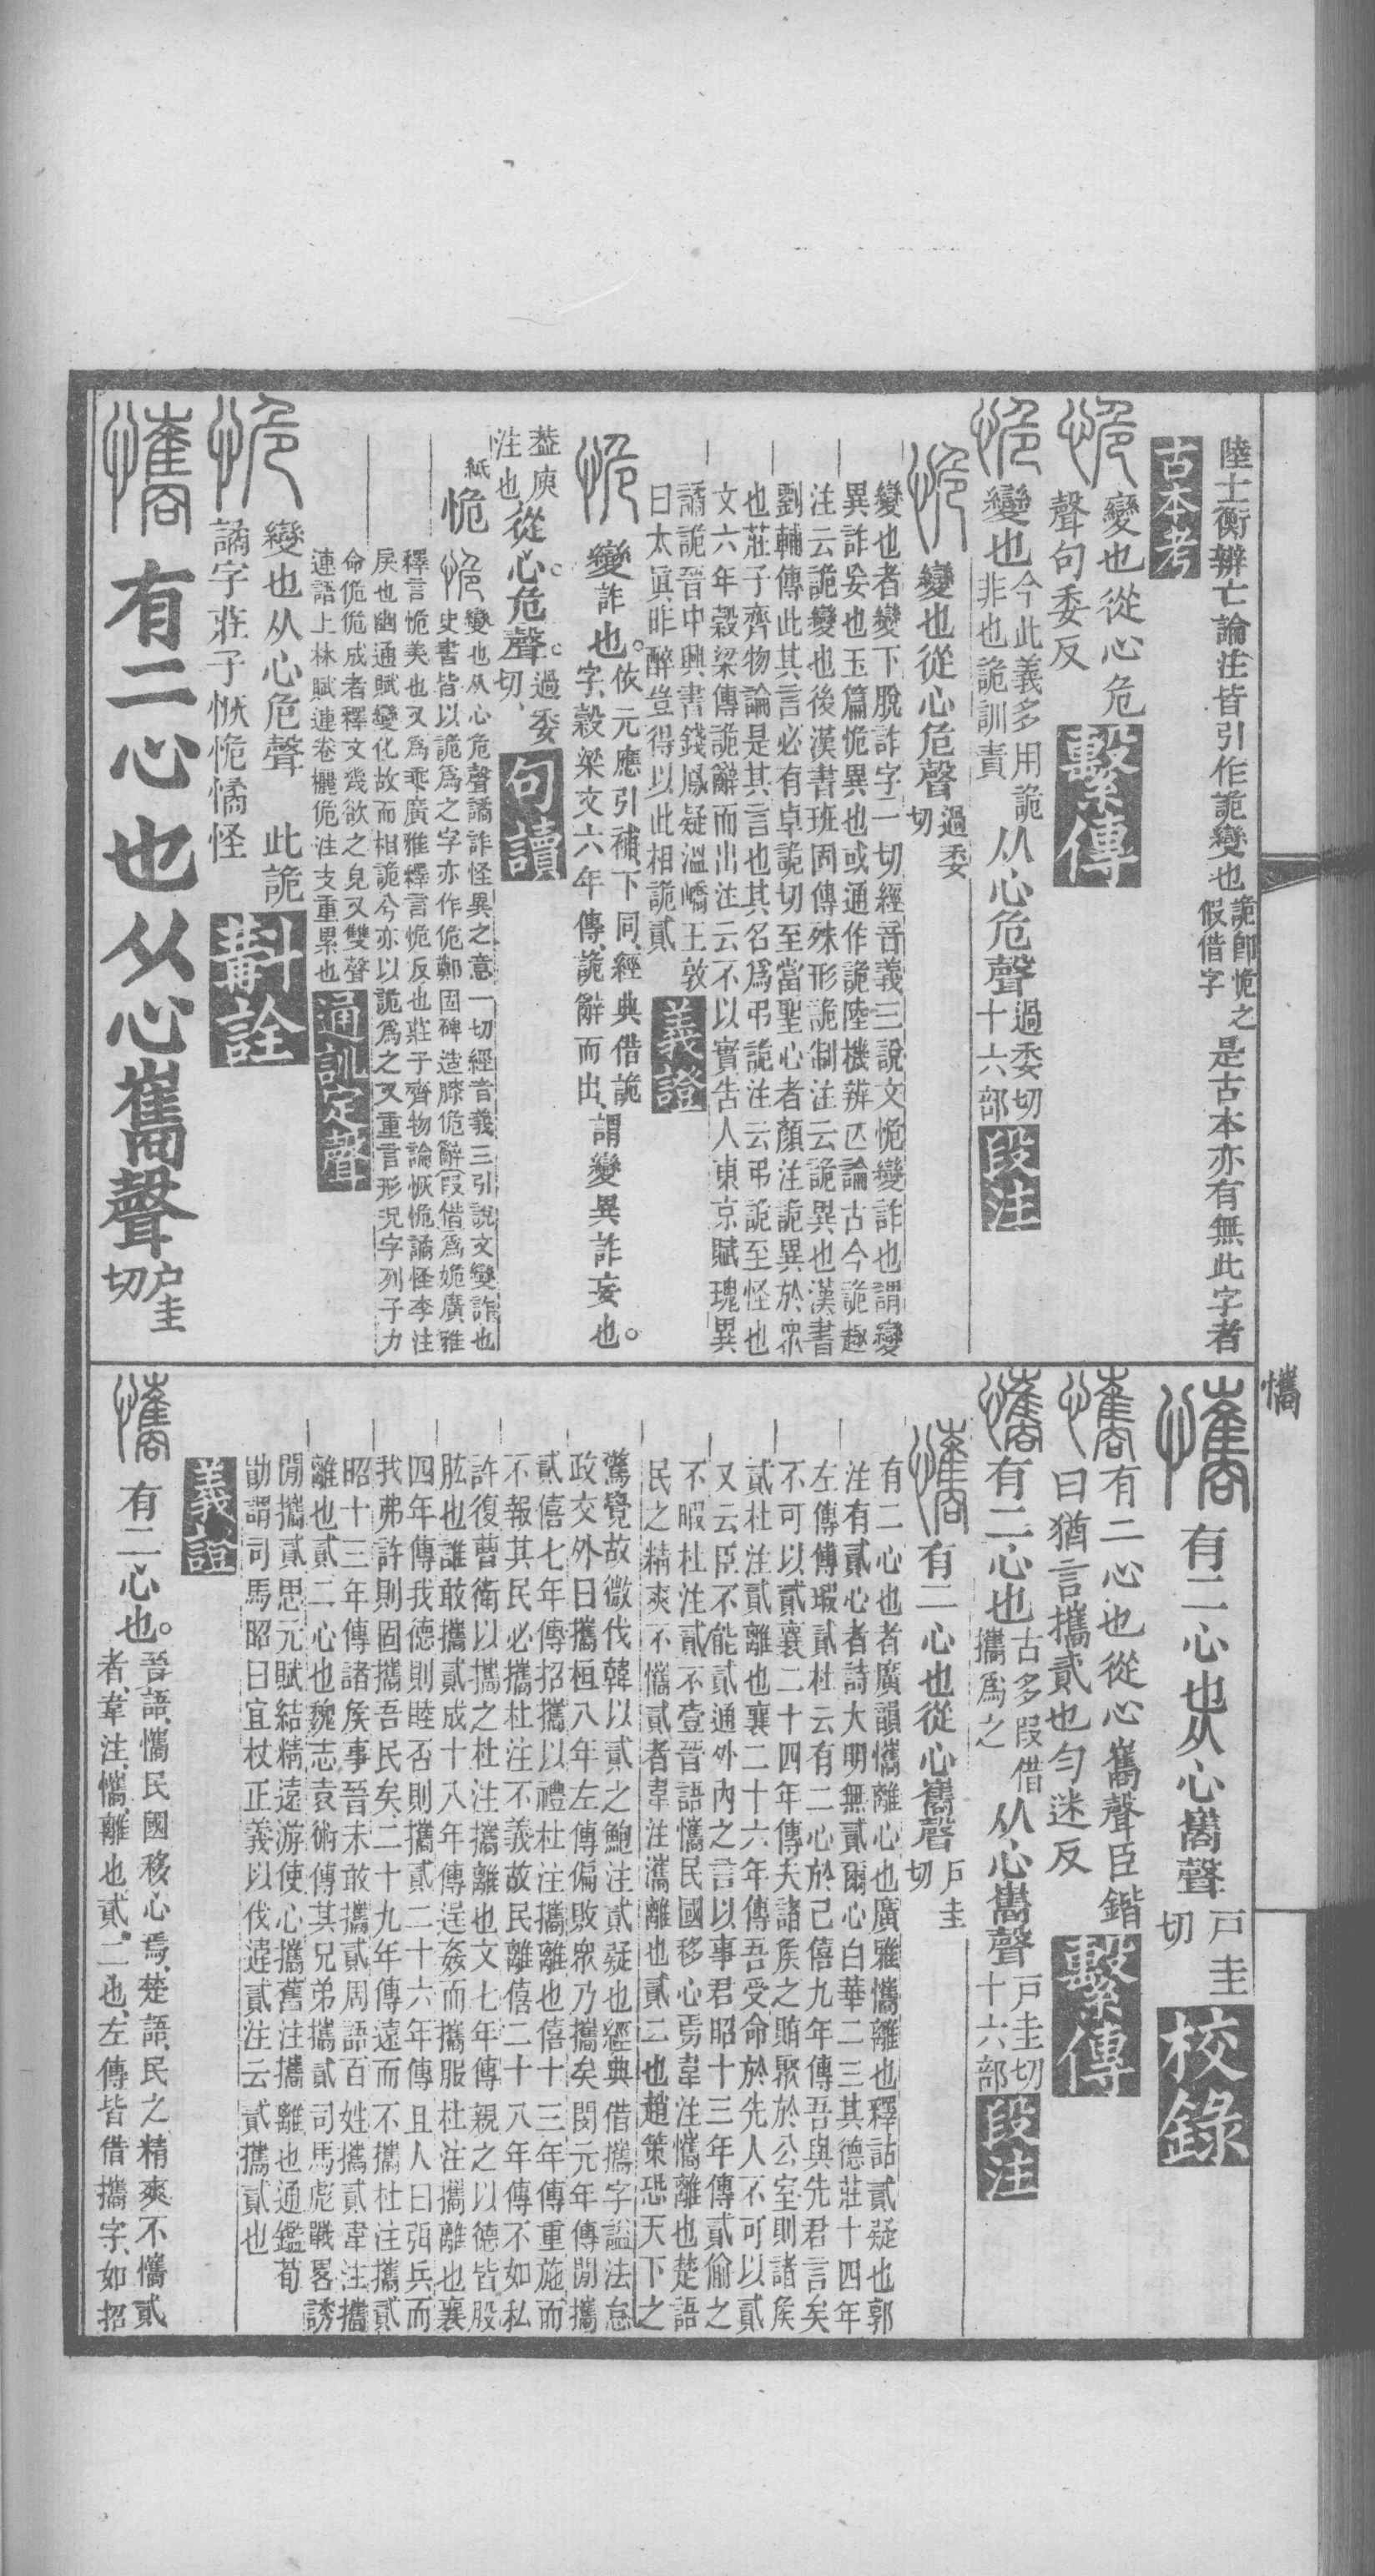 陸士衡辨亡論注皆引作詭變也詭卽恑之假借字是古本亦有無此字者
古本考
恑 變也從心危
聲句委反 繫傳
恑 變也今此義多用詭非也詭訓責从心危聲過委切十六部 段注
恑 變也從心危聲過委切
變也者變下脫詐字一切經音義三說文恑變詐也謂變
異詐妄也玉篇恑異也或通作詭陸機辨亡論古今詭趣
注云詭變也後漢書班固傳殊形詭制注云詭異也漢書
劉輔傳此其言必有卓詭切至當聖心者顏注詭異於眾
也莊子齊物論是其言也其名爲弔詭注云弔詭至怪也
文六年穀梁傳詭辭而出注云不以實告人東京賦瑰異
譎詭晉中興書錢鳳疑溫嶠王敦
曰太眞昨醉豈得以此相詭貳 義證
恑 變詐也。依元應引補、下同、經典借詭
字、穀梁文六年傳、詭辭而出、謂變異詐妄也。
葢庾
注也、從心。危聲。過委切、 句讀
紙 恑
恑 變也从心危聲譎詐怪異之意一切經音義三引說文變詐也
史書皆以詭爲之字亦作佹鄭固碑造膝佹辭叚借爲姽廣雅
釋言恑美也又爲乖廣雅釋言恑反也莊子齊物論恢恑譎怪李注
戾也幽通賦變化故而相詭今亦以詭爲之又重言形況字列子力
命佹佹成者釋文幾欲之皃又雙聲
連語上林賦連卷欐佹注支重累也 通訓定聲
恑 變也从心危聲 此詭
譎字莊子恢恑憰怪 斠詮
懏 有二心也从心巂聲戶圭切
懏
有二心也从心巂聲戶圭切 校錄
有二心也從心巂聲臣鍇
曰猶言攜貳也勻迷反 繫傳
有二心也古多叚借攜爲之从心巂聲戶圭切十六部 段注
有二心也從心巂聲戶圭切
有二心也者廣韻懏離心也廣雅懏離也釋詁貳疑也郭
注有貳心者詩大明無貳爾心白華二三其德莊十四年
左傳傅瑕貳杜云有二心於己僖九年傳吾與先君言矣
不可以貳襄二十四年傳夫諸矦之賄聚於公室則諸矦
貳杜注貳離也襄二十六年傳吾受命於先人不可以貳
又云臣不能貳通外內之言以事君昭十三年傳貳偷之
不暇杜注貳不壹晉語懏民國移心焉韋注懏離也楚語
民之精爽不懏貳者韋注懏離也貳二也趙策恐天下之
驚覺故微伐韓以貳之鮑注貳疑也經典借攜字謚法怠
政交外曰攜桓八年左傳偏敗眾乃攜矣閔元年傳閒攜
貳僖七年傳招攜以禮杜注攜離也僖十三年傳重施而
不報其民必攜杜注不義故民離僖二十八年傳不如私
許復曹衛以攜之杜注攜離也文七年傳親之以德皆股
肱也誰敢攜貳成十八年傳逞姦而攜服杜注攜離也襄
四年傳我德則睦否則攜貳二十六年傳且人曰弭兵而
我弗許則固攜吾民矣二十九年傳遠而不攜杜注攜貳
昭十三年傳諸矦事晉未敢攜貳周語百姓攜貳韋注攜
離也貳二心也魏志袁術傳其兄弟攜貳司馬彪戰畧誘
閒攜貳思元賦結精遠游使心攜舊注攜離也通鑑荀
勖謂司馬昭曰宜杖正義以伐違貳注云貳攜貳也
義證
有二心也。晉語、懏民國移心焉、楚語、民之精爽不懏貳
者、韋注、懏、離也、貳、二也、左傳皆借攜字、如招